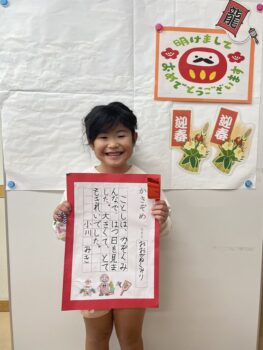 龍
明けまして
おめでとうございます
迎春
迎春
かきぞめ
ことしは、かぞくみ
んなで、はつ日を見ま
した。大きくて、とて
もきれいでした。
小川 みき